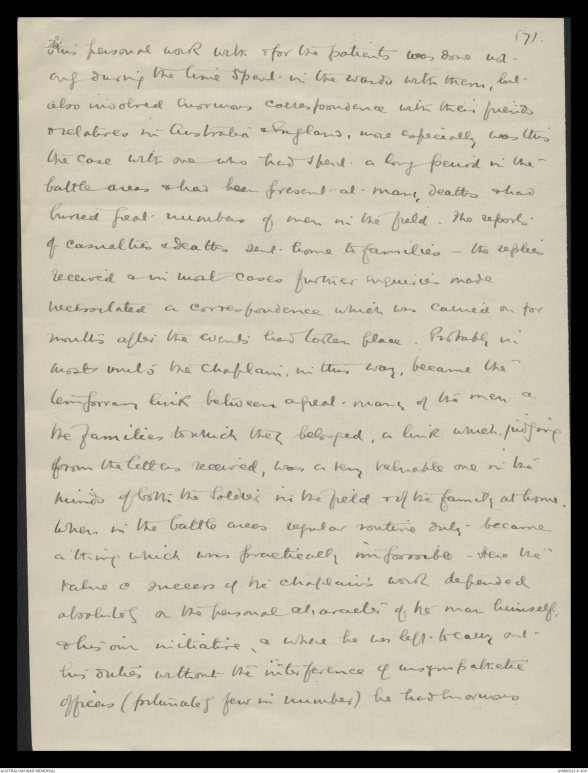 (7).
This personal work with & for the patients was done not
only during the time spent in the wards with them, but
also involved enormous correspondence with their friends
& relatives in Australia & England, more especially was this
the case with one who had spent a long period in the
battle areas & had been present at many deaths & had
buried great numbers of men in the field. The reports
of casualties & deaths sent home to families – the replies
received & in most cases further enquiries made
necessitated a correspondence which was carried on for
months after the events had taken place. Probably in
most units the Chaplain, in this way, became the
temporary link between a great many of the men &
the families to which they belonged, a link which, judging
from the letters received, was a very valuable one in the
minds of both the soldier in the field & of the family at home.
When in the battle areas regular routine duty became
a thing which was practically impossible – Here the
value & success of the chaplain's work depended
absolutely on the personal character of the man himself,
& his own initiative, & where he was left to carry out
his duties without the interference of unsympathetic
officers (fortunately few in number) he had enormous
AUSTRALIAN WAR MEMORIAL